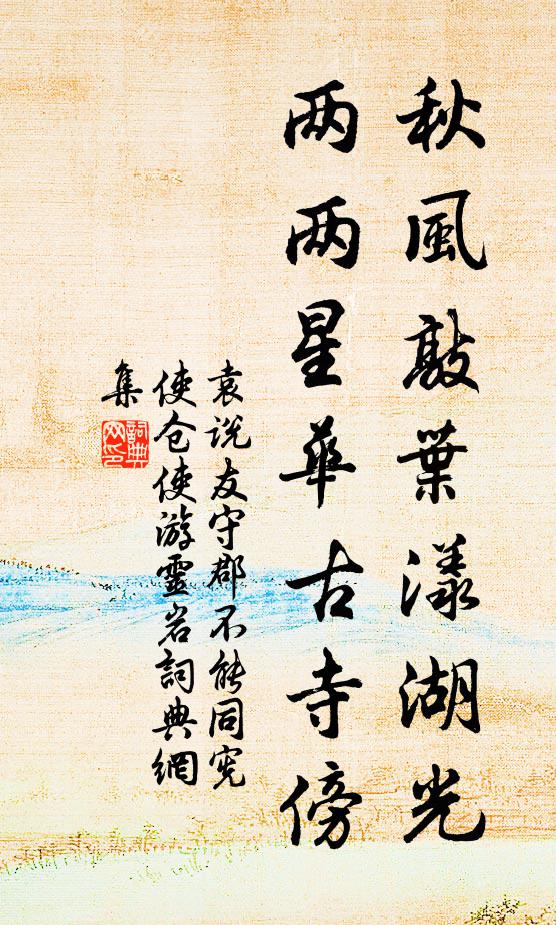 秋風敲葉漾湖光
两两星華古寺傍
袁说友守郡不能同宪
使仓使游靈岩詞典網
集
詞典网印